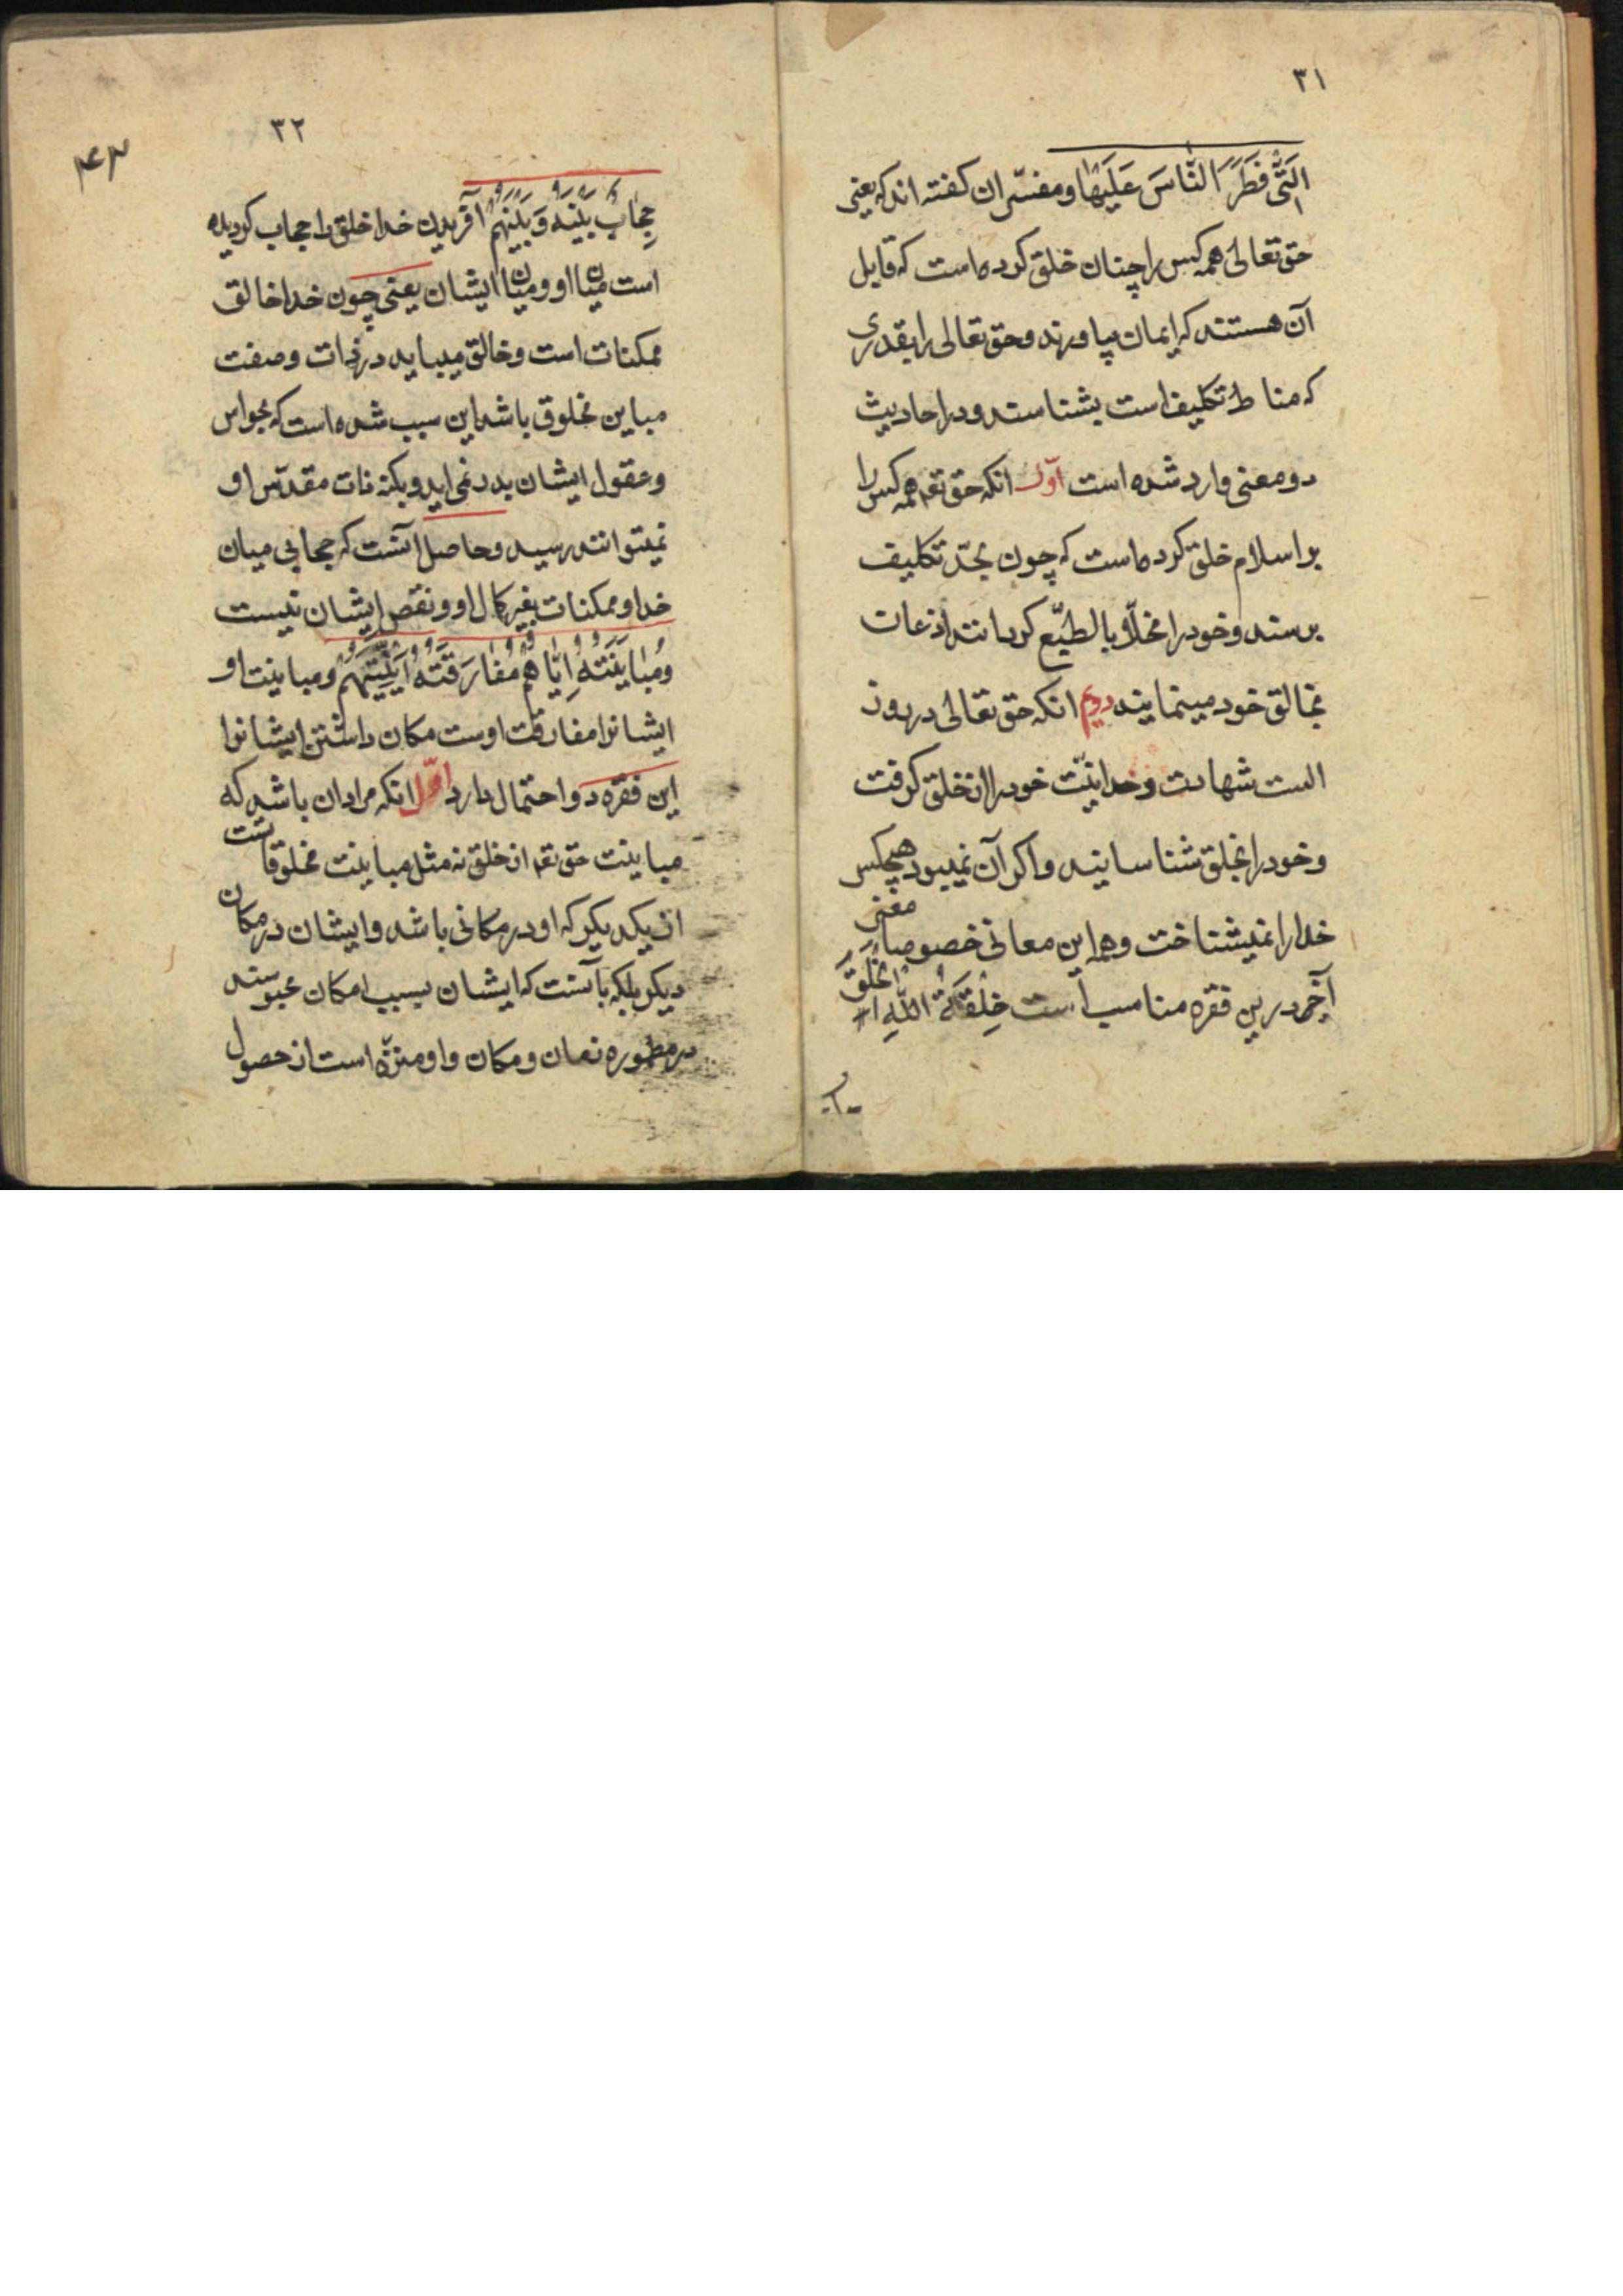 ۳۱
الَّتی فَطَرَ النَّاسَ عَلَیْهَا و مفسّران کفته اند که یعنی
حق تعالی همه کس را چنان خلق کرده است که قابل
آن هستند که ایمان بیاورند و حق تعالی را بقدری
که مناط تکلیف است بشناسند و در احادیث
دو معنی وارد شده است اوّل انکه حق تعه همه کس را
بر اسلام خلق کرده است که چون بحدّ تکلیف
برسند و خود را مخلّا و بالطبع کردانند اذعان
بخالق خود مینمایند دویم انکه حق تعالی در روز
الست شهادت وحدانیّت خود را از خلق کرفت
و خود را بخلق شناسانید و اکر آن نمیبود هیچکس
خدا را نمیشناخت و همه این معانی خصوصا معنی
آخر درین فقره مناسب است خِلْقَةُ اللّٰهِ الْخَلْقَ
۳۲
۴۳
حِجَابٌ بَیْنَهُ وَ بَیْنَهُمْ آفریدن خدا خلق را حجاب کردیده
است میان او و میان ایشان یعنی چون خدا خالق
ممکنات است و خالق میباید در ذات و صفت
مباین مخلوق باشد این سبب شده است که بحواس
و عقول ایشان بدر نمی اید و بکنه ذات مقدّس او
نمیتوانند رسید و حاصل آنست که حجابی میان
خدا و ممکنات بغیر کمال او و نقص ایشان نیست
وَ مُبَایَنَتُهُ اِیَّاهُمْ مُفَارَقَتُهُ اَیْنِیَّتَهُمْ و مباینت او
ایشانرا مفارقت اوست مکان داشتن ایشانرا
این فقره دو احتمال دارد اوّل انکه مراد ان باشد که
مباینت حق تعه از خلق نه مثل مباینت مخلوقاتست
از یکدیکر که او در مکانی باشد و ایشان در مکان
دیکر بلکه بآنست که ایشان بسبب امکان محبوسند
در مطموره زمان و مکان و او منزّه است از حصول